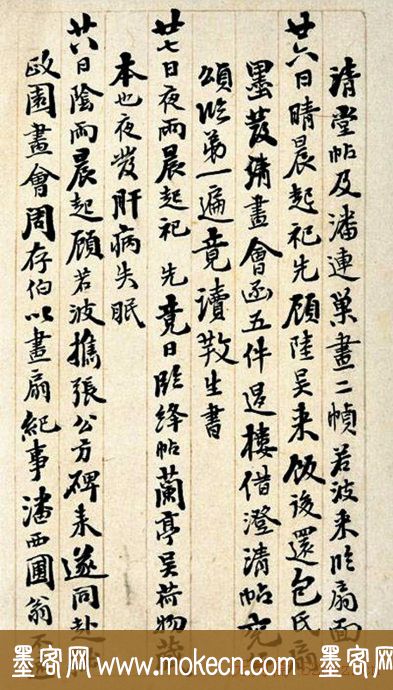 清堂帖及潘連巢畫二幀若波來臨扇面
廿六日晴晨起祀先顧陸吳來飯後還包氏扇
墨裝 畫會函五件退樓借澄清帖
頌臨第一遍竟讀 生書
廿七日夜雨晨起祀 先竟日臨絳帖蘭亭吳荷物
本也夜發肝病失眠
廿八日陰雨晨起顧若波攜張公方碑来遂同赴
畫會周存伯以畫扇紀事潘西圃翁
墨客网 www.mokecn.com 墨客网